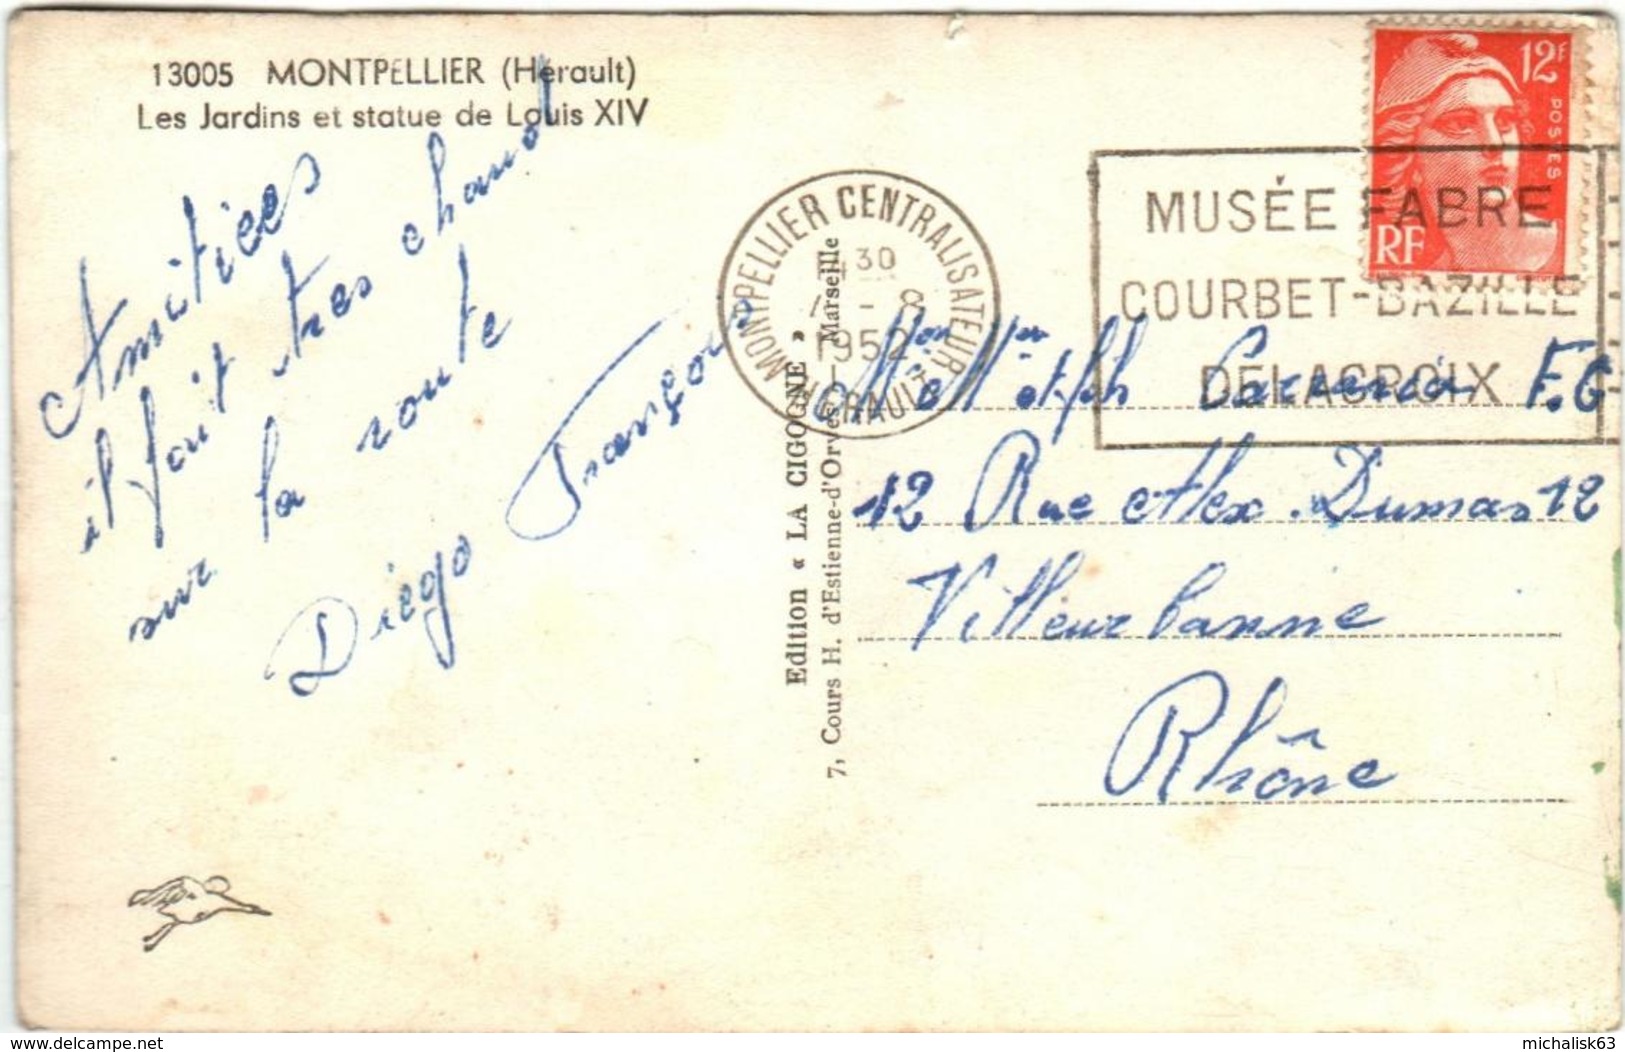 13005 MONTPELLIER (Hérault)
Les Jardins et statue de Louis XIV
Amitiées
il fait tres chaud
sur la route
Diégo Françoi
Edition « LA CIGOGNE »
7, Cours H. d'Estienne-d'Orves - Marseille
MONTPELLIER CENTRALISATEUR
30
8
1952
HÉRAULT
MUSÉE FABRE
COURBET-BAZILLE
DELACROIX
12F
POSTES
RF
F.G
12 Rue Alex. Dumas 12
Villeurbanne
Rhône
www.delcampe.net
michalisk63